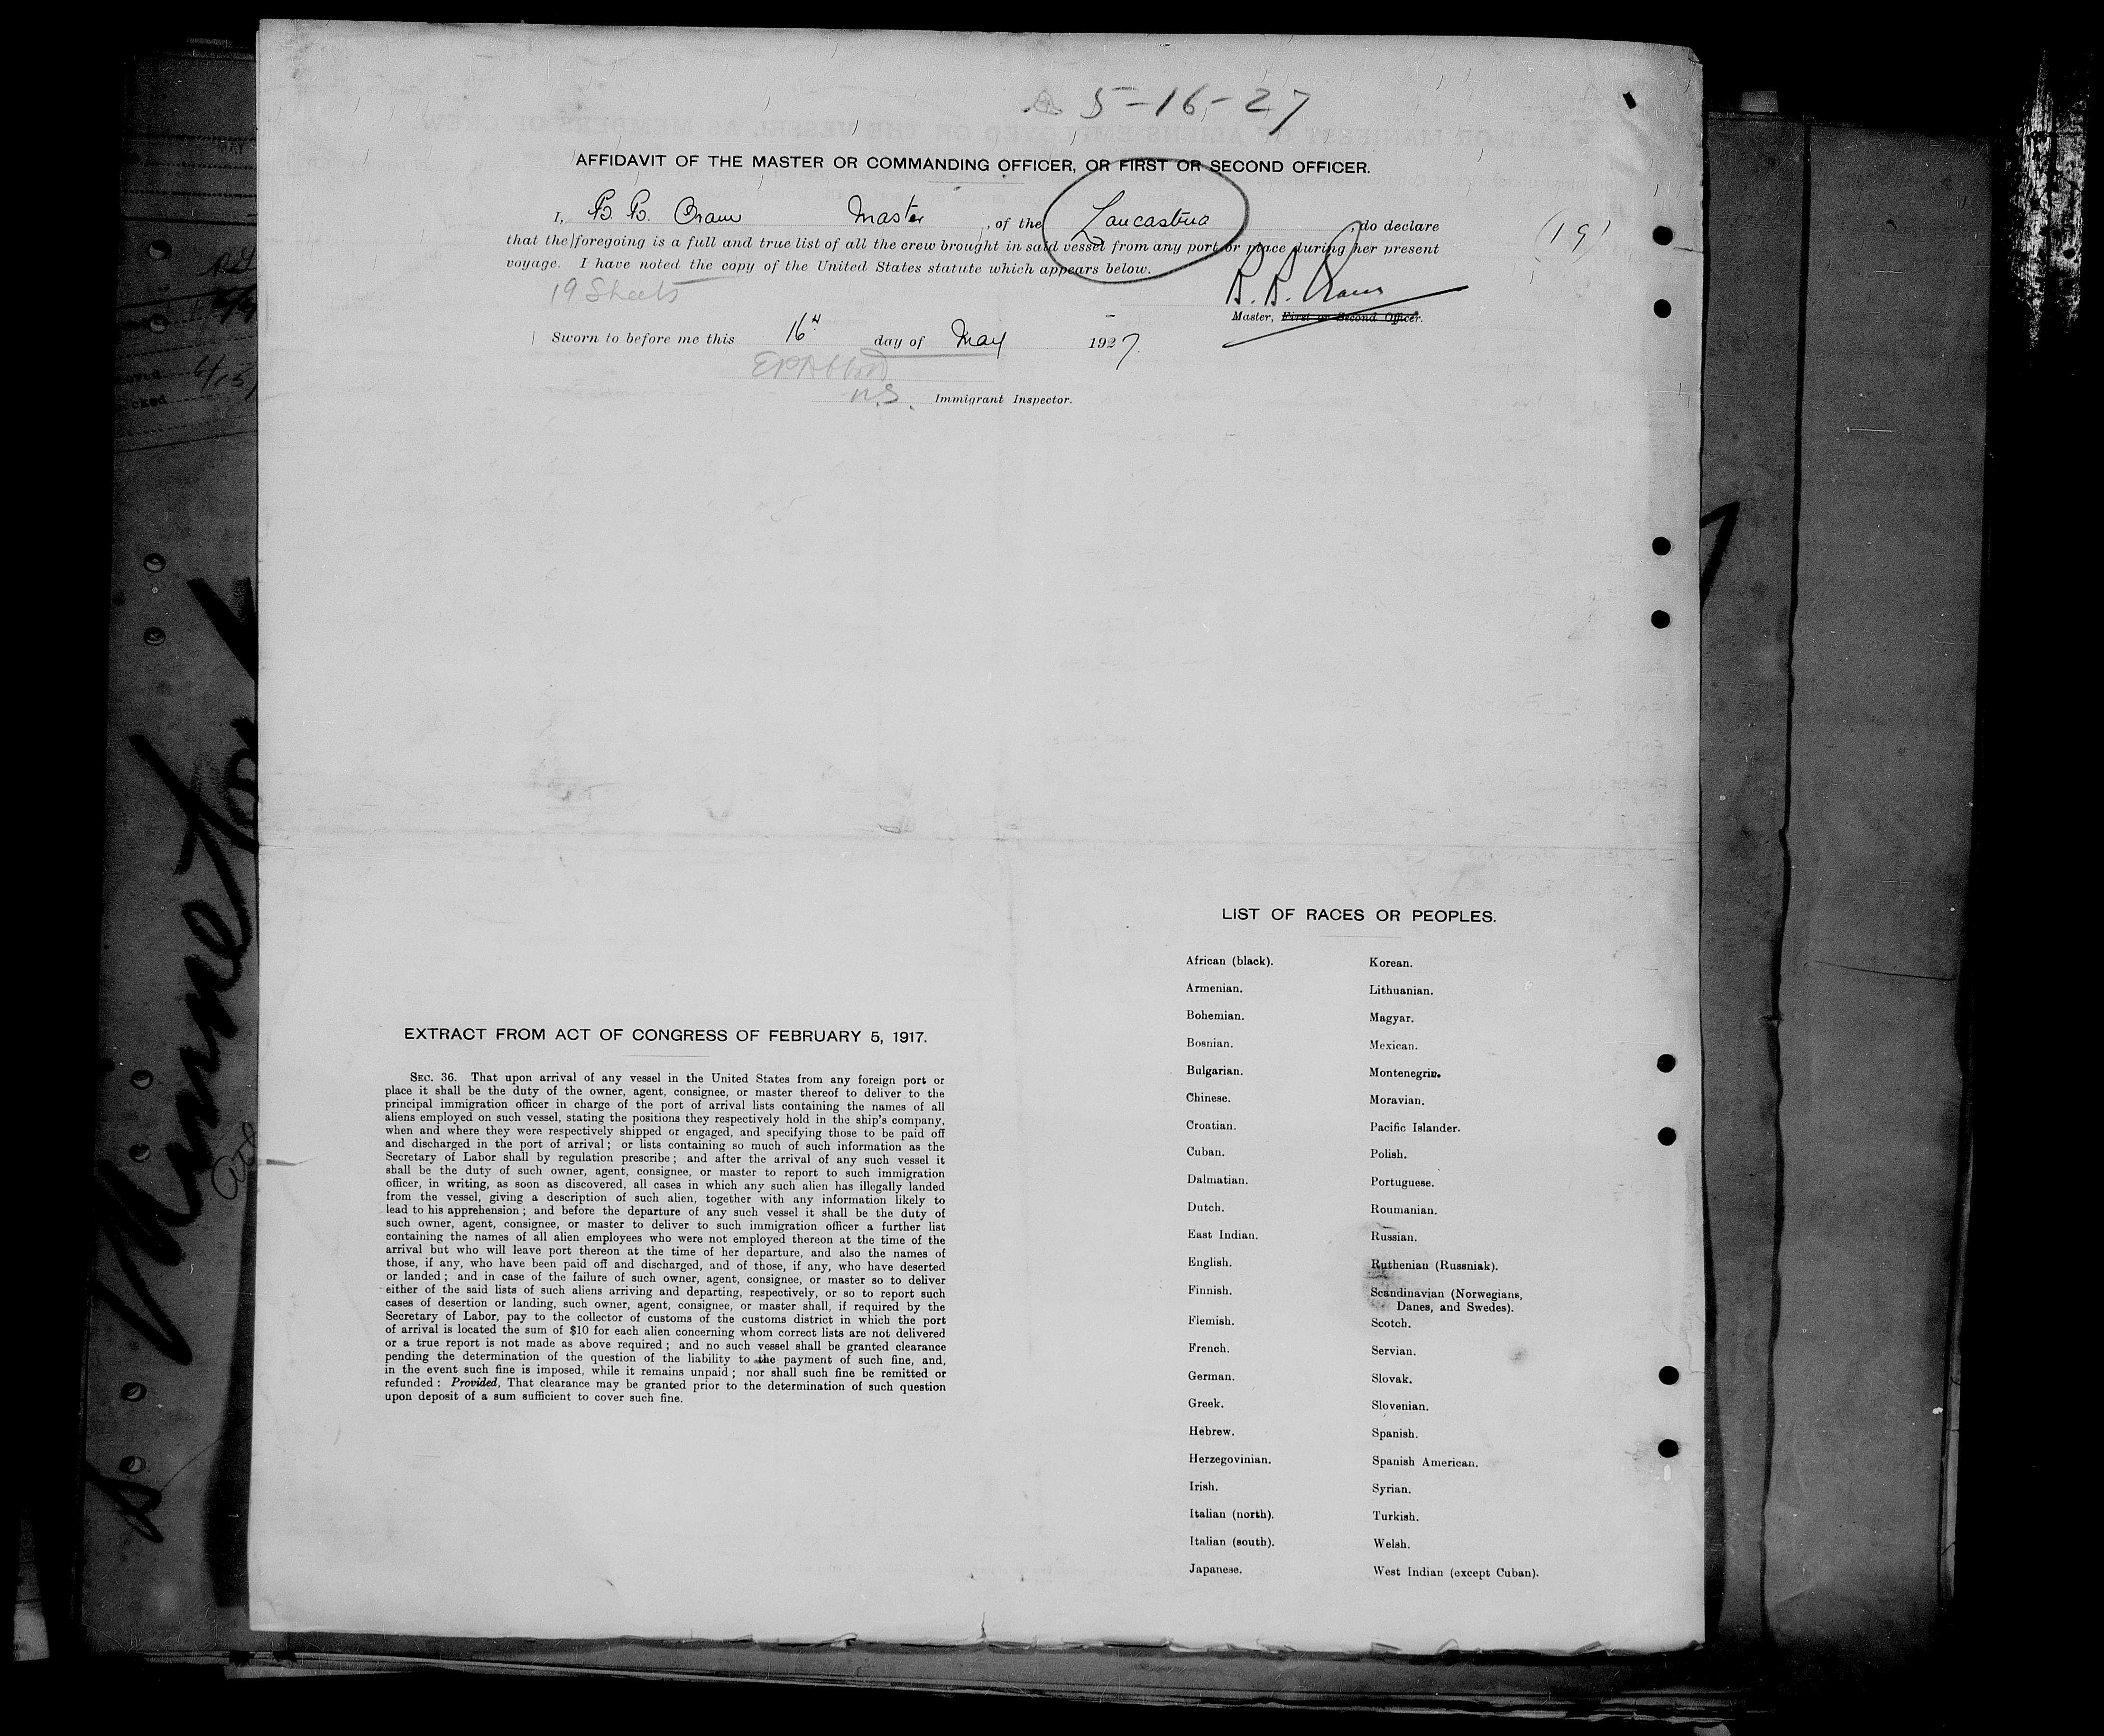 5-16-27
AFFIDAVIT OF THE MASTER OR COMMANDING OFFICER, OR FIRST OR SECOND OFFICER.
I, B. B. Oram Master, of the Lancastria, do declare
(19)
that the foregoing is a full and true list of all the crew brought in said vessel from any port or place during her present
voyage. I have noted the copy of the United States statute which appears below.
19 Sheets
B. B. Oram
Master, First or Second Officer.
Sworn to before me this 16th day of May 1927.
Immigrant Inspector.
LIST OF RACES OR PEOPLES.
African (black).
Armenian.
Bohemian.
Bosnian.
Bulgarian.
Chinese.
Croatian.
Cuban.
Dalmatian.
Dutch.
East Indian.
English.
Finnish.
Flemish.
French.
German.
Greek.
Hebrew.
Herzegovinian.
Irish.
Italian (north).
Italian (south).
Japanese.
Korean.
Lithuanian.
Magyar.
Mexican.
Montenegrin.
Moravian.
Pacific Islander.
Polish.
Portuguese.
Roumanian.
Russian.
Ruthenian (Russniak).
Scandinavian (Norwegians,
Danes, and Swedes).
Scotch.
Servian.
Slovak.
Slovenian.
Spanish.
Spanish American.
Syrian.
Turkish.
Welsh.
West Indian (except Cuban).
EXTRACT FROM ACT OF CONGRESS OF FEBRUARY 5, 1917.
SEC. 36. That upon arrival of any vessel in the United States from any foreign port or
place it shall be the duty of the owner, agent, consignee, or master thereof to deliver to the
principal immigration officer in charge of the port of arrival lists containing the names of all
aliens employed on such vessel, stating the positions they respectively hold in the ship's company,
when and where they were respectively shipped or engaged, and specifying those to be paid off
and discharged in the port of arrival; or lists containing so much of such information as the
Secretary of Labor shall by regulation prescribe; and after the arrival of any such vessel it
shall be the duty of such owner, agent, consignee, or master to report to such immigration
officer, in writing, as soon as discovered, all cases in which any such alien has illegally landed
from the vessel, giving a description of such alien, together with any information likely to
lead to his apprehension; and before the departure of any such vessel it shall be the duty of
such owner, agent, consignee, or master to deliver to such immigration officer a further list
containing the names of all alien employees who were not employed thereon at the time of the
arrival but who will leave port thereon at the time of her departure, and also the names of
those, if any, who have been paid off and discharged, and of those, if any, who have deserted
or landed; and in case of the failure of such owner, agent, consignee, or master so to deliver
either of the said lists of such aliens arriving and departing, respectively, or so to report such
cases of desertion or landing, such owner, agent, consignee, or master shall, if required by the
Secretary of Labor, pay to the collector of customs of the customs district in which the port
of arrival is located the sum of $10 for each alien concerning whom correct lists are not delivered
or a true report is not made as above required; and no such vessel shall be granted clearance
pending the determination of the question of the liability to the payment of such fine, and,
in the event such fine is imposed, while it remains unpaid; nor shall such fine be remitted or
refunded: Provided, That clearance may be granted prior to the determination of such question
upon deposit of a sum sufficient to cover such fine.